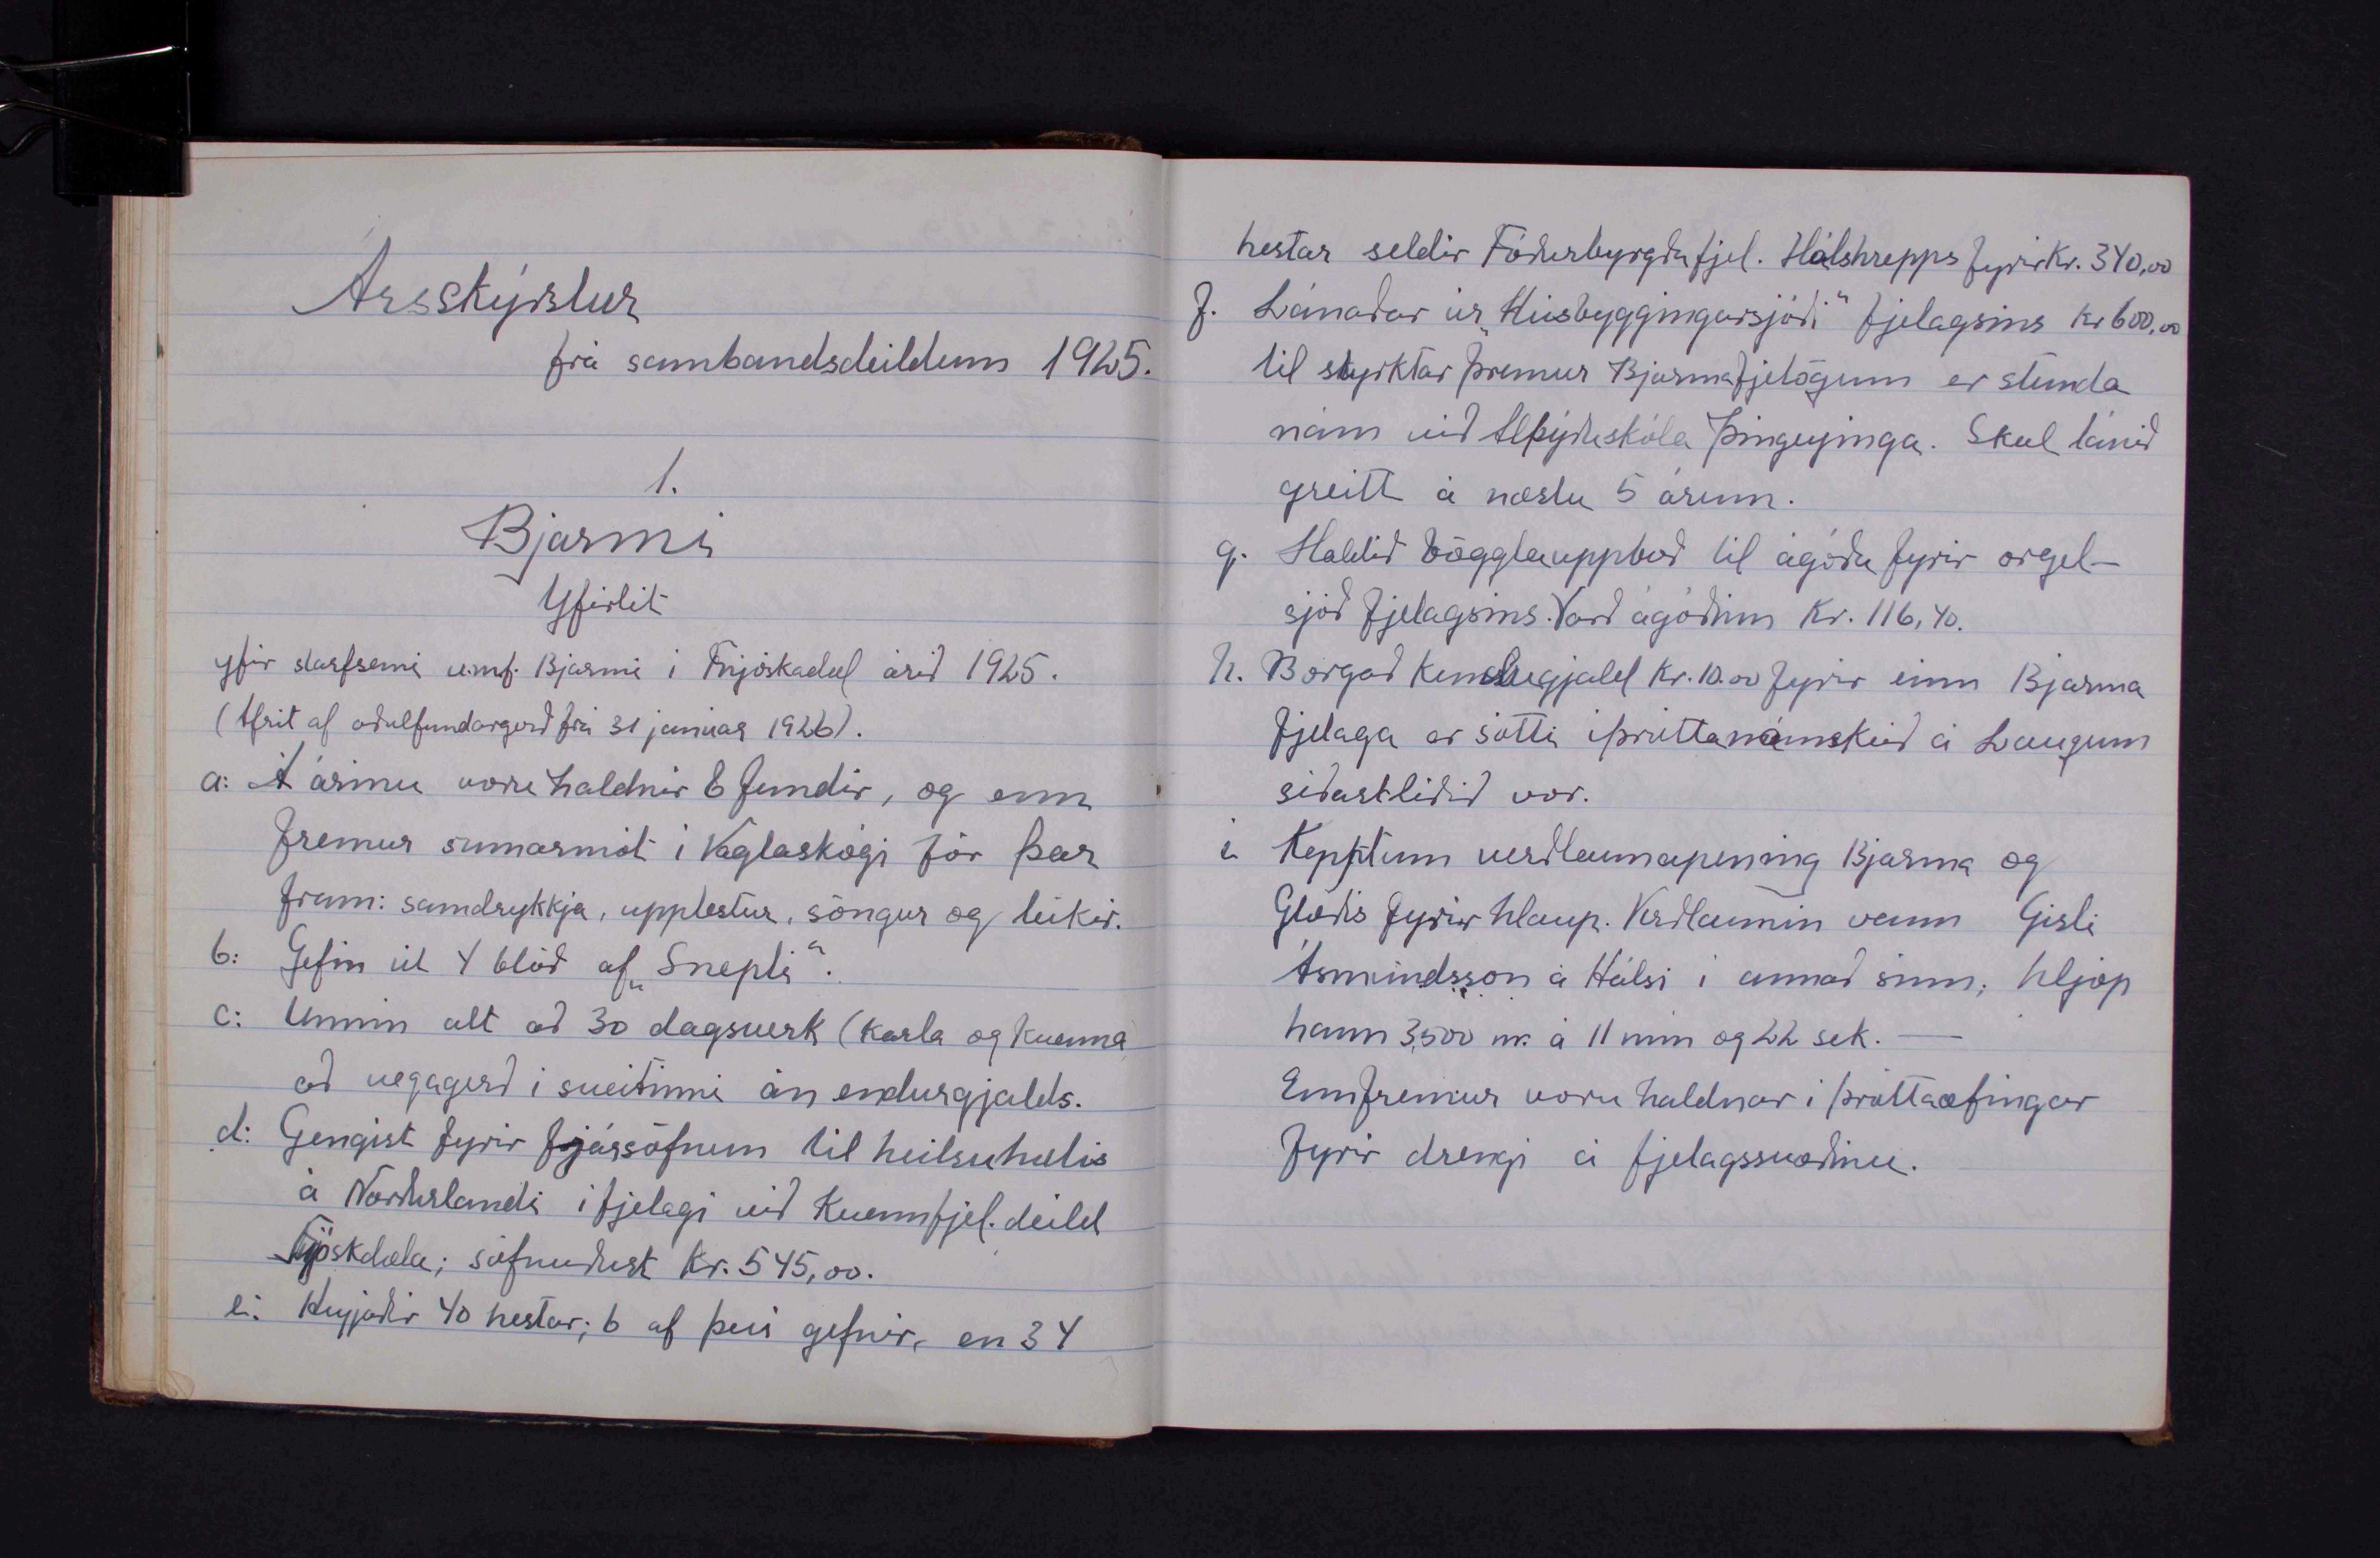 Ársskýrslur
frá sambandsdeildum 1925.
1.
Bjarmi
Yfirlit
yfir starfsemi u.m.f. Bjarmi í Fnjóskadal árið 1925.
(Afrit af aðalfundargerð frá 31 janúar 1926).
a: Á árinu voru haldnir 6 fundir, og enn
fremur sumarmót í Vaglaskógi fór þar
fram: samdrykkja, upplestur, söngur og leikir.
b: Gefin út 4 blöð af „Snepli“.
c: Unnin alt að 30 dagsverk (karla og kvenna
að vegagerð í sveitinni án endurgjalds.
d: Gengist fyrir fjársöfnum til heilsuhælis
á Norðurlandi í fjelagi við Kvennfjel. deild
Fnjóskdæla; söfnuðust kr. 545,00.
e: Heyjaðir 40 hestar; 6 af því gefnir, en 34
hestar seldir Fóðurbyrgðafjel. Hálshrepps fyrir kr. 340,00
f. Lánaðar úr „Húsbyggingarsjóði“ fjelagsins kr 600,00
til styrktar þremur Bjarmafjelögum er stunda
nám við Alþýðuskóla Þingeyinga. Skul lánið
greitt á næstu 5 árum.
g. Haldið bögglauppboð til ágóða fyrir orgel-
sjóð fjelagsins. Varð ágóðinn Kr. 116,40.
h. Borgað kenslugjald kr. 10.00 fyrir einn Bjarma
fjelaga er sótti íþróttanámskeið á Laugum
síðastliðið vor.
i Kepptum verðlaunapening Bjarma og
Glæðis fyrir hlaup. Verðlaunin vann Gísli
Ásmundsson á Hálsi í annað sinn; hljóp
hann 3,500 m. á 11 mín og 22 sek. —
Ennfremur voru haldnar íþróttaæfingar
fyrir drengi á fjelagssvæðinu.